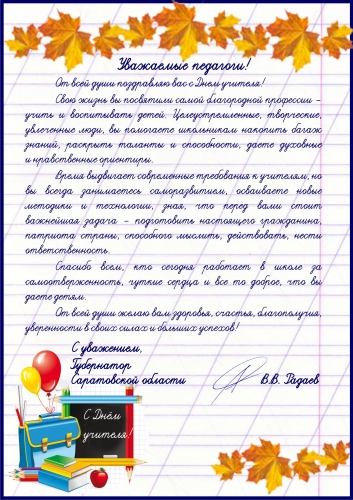 Уважаемые педагоги!
От всей души поздравляю вас с Днем учителя!
Свою жизнь вы посвятили самой благородной профессии –
учить и воспитывать детей. Целеустремленные, творческие,
увлеченные люди, вы помогаете школьникам накопить багаж
знаний, раскрыть таланты и способности, даете духовные
и нравственные ориентиры.
Время выдвигает современные требования к учителям, но
вы всегда занимаетесь саморазвитием, осваиваете новые
методики и технологии, зная, что перед вами стоит
важнейшая задача – подготовить настоящего гражданина,
патриота страны, способного мыслить, действовать, нести
ответственность.
Спасибо всем, кто сегодня работает в школе за
самоотверженность, чуткие сердца и все то доброе, что вы
даете детям.
От всей души желаю вам здоровья, счастья, благополучия,
уверенности в своих силах и больших успехов!
С уважением,
Губернатор
Саратовской области В.В. Радаев
С Днём
учителя!